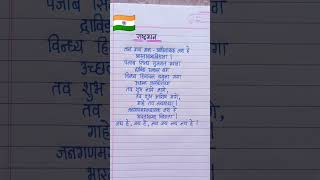 राष्ट्रगान
जन गण मन - अधिनायक जय हे
भारतभाग्यविधाता !
पंजाब सिन्ध गुजरात मराठा
द्राविड़ उत्कल बंग
विन्ध्य हिमाचल यमुना गंगा
उच्छल जलधितरंग
तव शुभ नामे जागे,
तव शुभ आशिष मागे,
गाहे तव जयगाथा ।
जनगणमंगलदायक जय हे
भारतभाग्य विधाता !
जय हे, जय हे, जय जय जय जय हे !